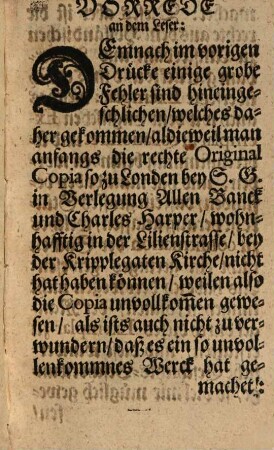 VORREDE
an dem Leser:
DEmnach im vorigen
Drücke einige grobe
Fehler sind hineinge-
schlichen/welches da-
her gekommen/aldieweil man
anfangs die rechte Original
Copia so zu Londen bey S. G.
in Verlegung Allen Banck
und Charles Harper/wohn-
hafftig in der Lilienstrasse/bey
der Kripplegaten Kirche/nicht
hat haben können/weilen also
die Copia unvollkom̃en gewe-
sen/als ists auch nicht zu ver-
wundern/daß es ein so unvol-
lenkommnes Werck hat ge-
machet!: